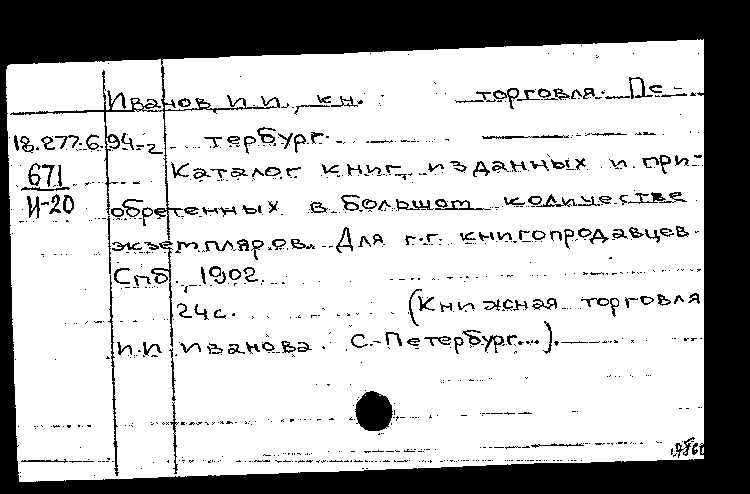 Иванов, И.И., кн. торговля. Пе-
18.277.6.94-2 тербург.
671 Каталог книг, изданных и при-
И-20 обретенных в большом количестве
экземпляров. Для г.г. книгопродавцев
Спб., 1902.
24с. (Книжная торговля
И.И. Иванова. С.-Петербург...).